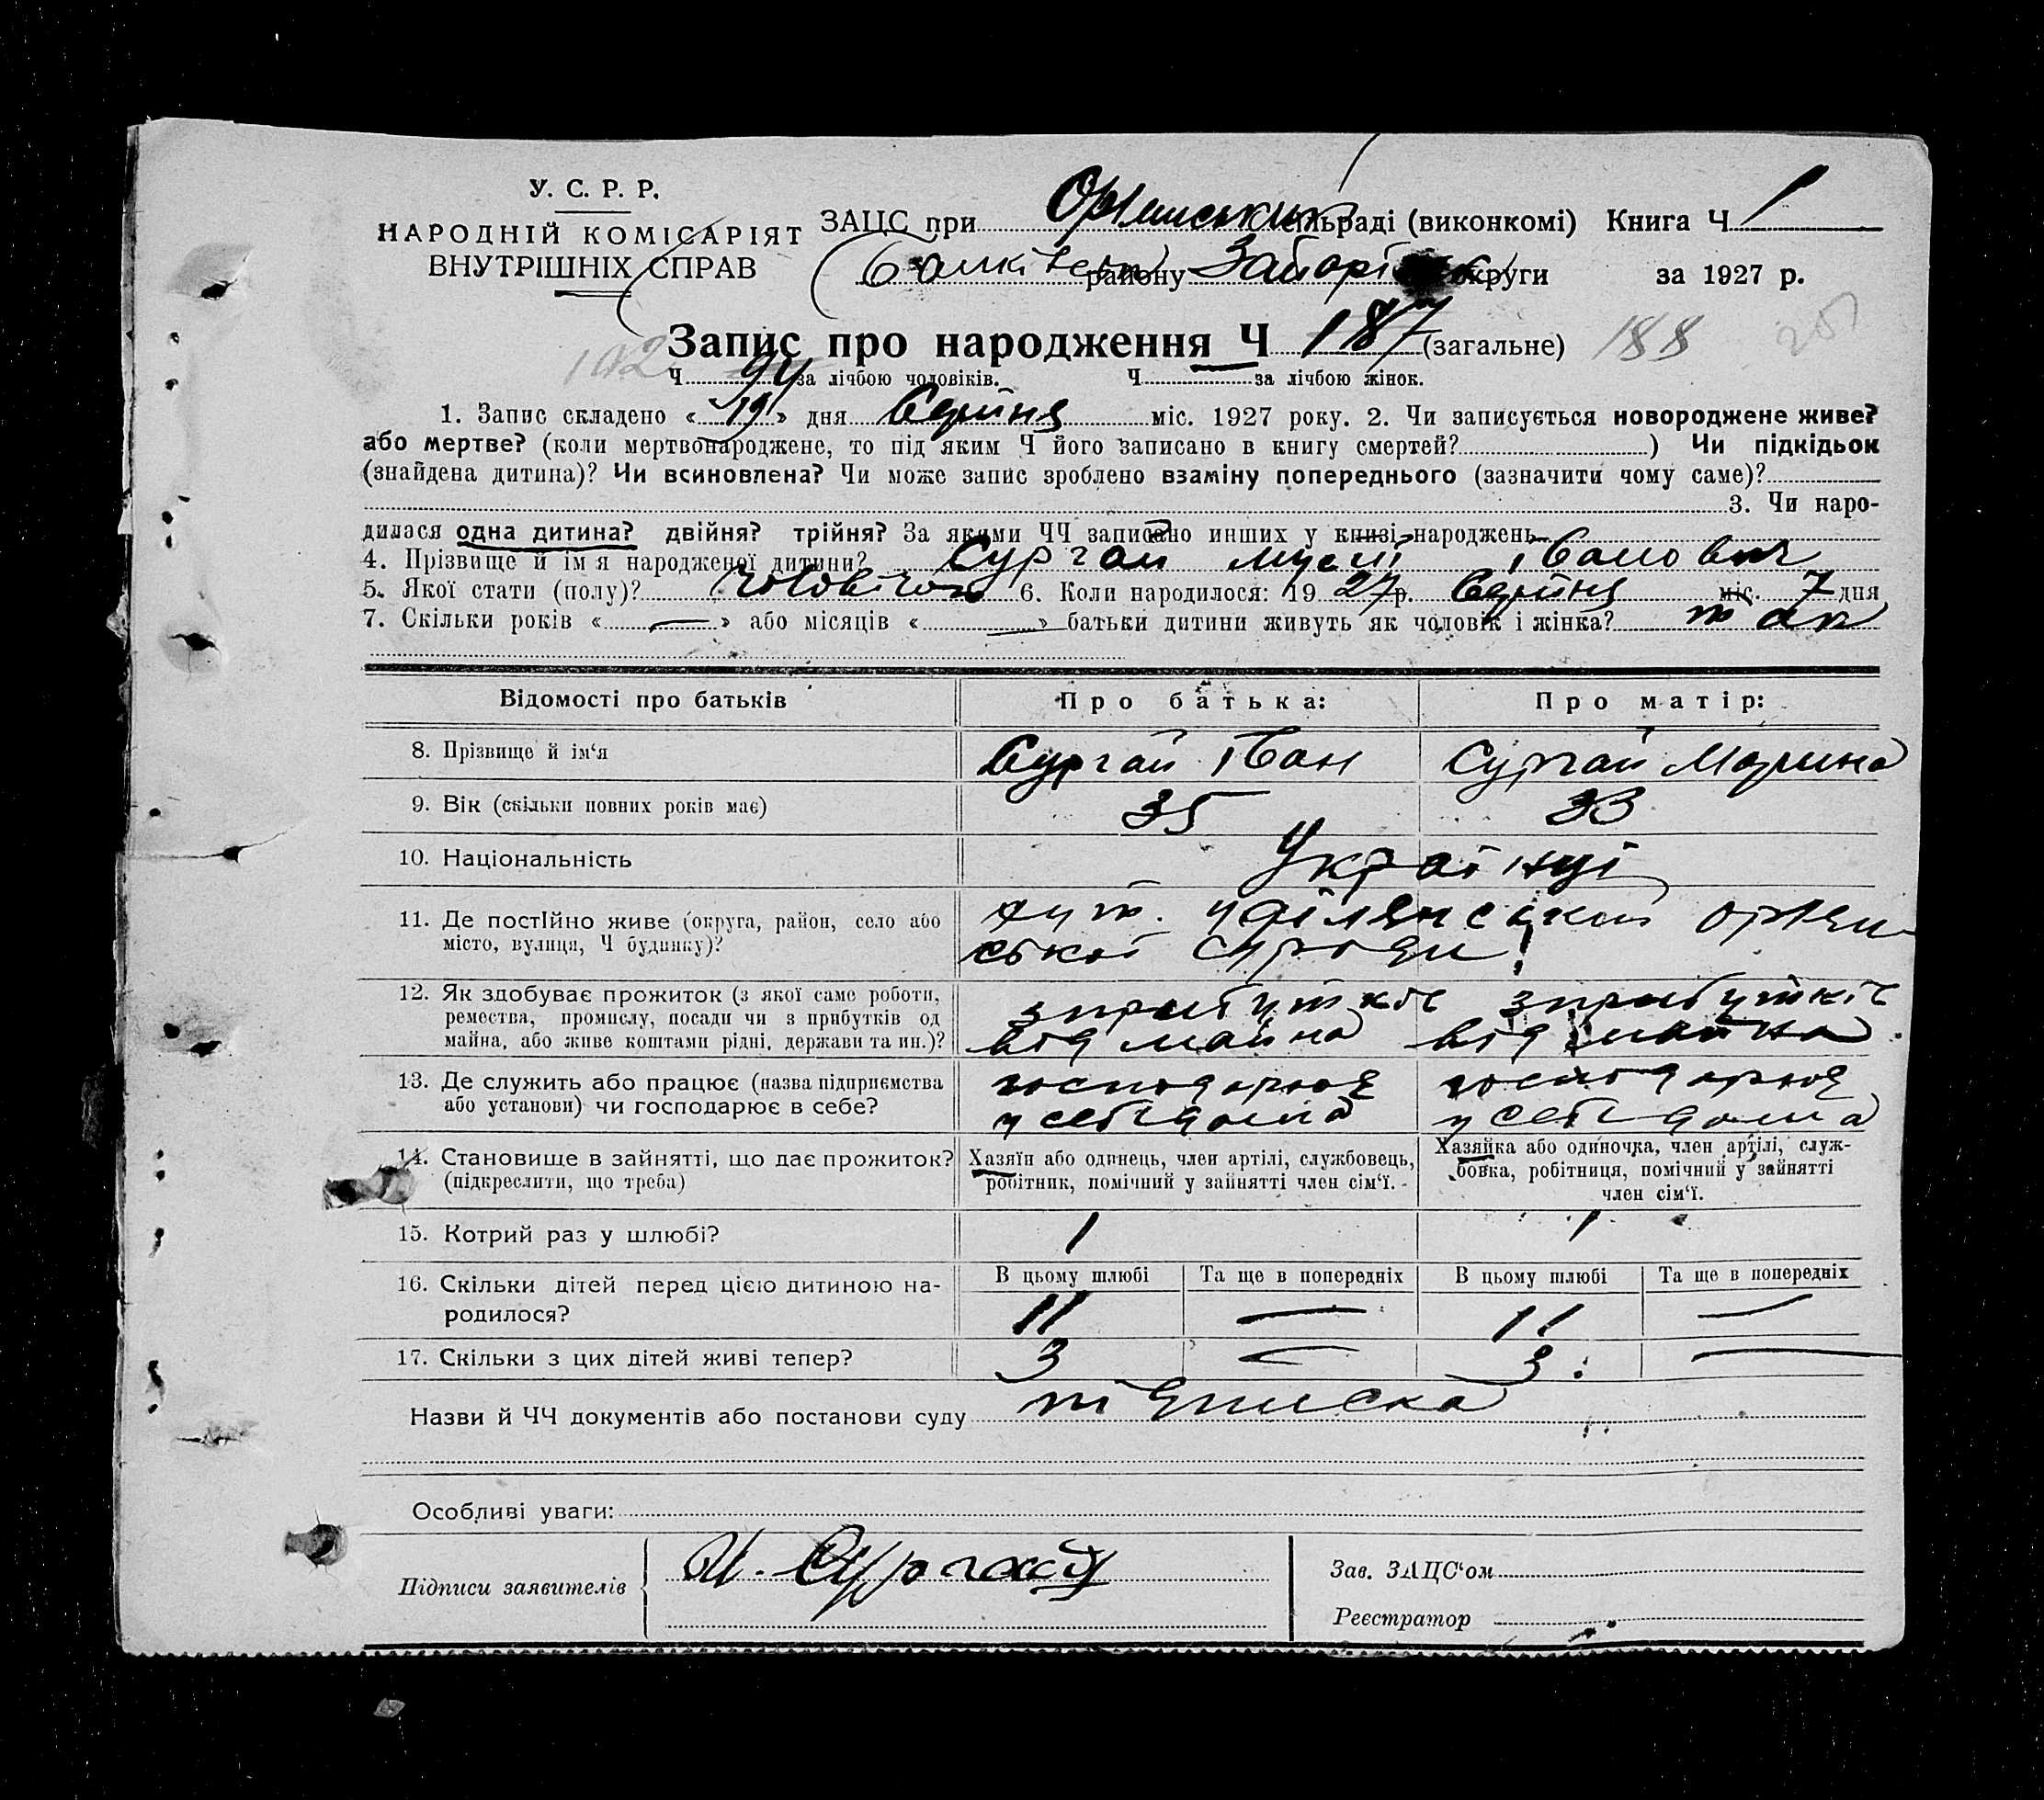 У. С. Р. Р.
НАРОДНІЙ КОМІСАРІЯТ
ВНУТРІШНІХ СПРАВ
ЗАЦС при сільраді (виконкомі) Книга Ч 1
району округи за 1927 р.
Запис про народження Ч 187 (загальне) 188
Ч 94 за лічбою чоловіків. Ч за лічбою жінок.
1. Запис складено « 19 » дня Серпня міс. 1927 року. 2. Чи записується новороджене живе?
або мертве? (коли мертвонароджене, то під яким Ч його записано в книгу смертей? ) Чи підкідьок
(знайдева дитина)? Чи всиновлена? Чи може запис зроблено взаміну попереднього (зазначити чому саме)?
3. Чи наро-
дилася одна дитина? двійня? трійня? За якими ЧЧ записано инших у книзі народжень
4. Прізвище й ім'я народженої дитини? Сургай Іванович
5. Якої стати (полу)? чоловічої 6. Коли народилося: 19 27 р. Серпня міс. 7 дня
7. Скільки років « — » або місяців « — » батьки дитини живуть як чоловік і жінка? так
Відомості про батьків Про батька: Про матір:
8. Прізвище й ім'я Сургай Іван Сургай Марина
9. Вік (скільки повних років має) 35 33
10. Національність Українці
11. Де постійно живе (округа, район, село або
місто, вулиця, Ч будинку)?
хут.
12. Як здобуває прожиток (з якої саме роботи,
ремества, промислу, посади чи з прибутків од
майна, або живе коштами рідні, держави та ин.)?
з прибутків з прибутків
від майна від майна
13. Де служить або працює (назва підприємства
або установи) чи господарює в себе?
господарює господарює
у себе дома у себе дома
14. Становище в зайнятті, що дає прожиток?
(підкреслити, що треба)
Хазяїн або одинець, член артілі, службовець,
робітник, помічний у зайнятті член сім'ї.
Хазяйка або одиночка, член артілі, служ-
бовка, робітниця, помічний у зайнятті
член сім'ї.
15. Котрий раз у шлюбі? 1 1
16. Скільки дітей перед цією дитиною на-
родилося?
В цьому шлюбі Та ще в попередніх В цьому шлюбі Та ще в попередніх
11 — 11 —
17. Скільки з цих дітей живі тепер? 3 — 3 —
Назви й ЧЧ документів або постанови суду підписка
Особливі уваги:
Підписи заявителів И. Сургай
Зав. ЗАЦС'ом
Реєстратор